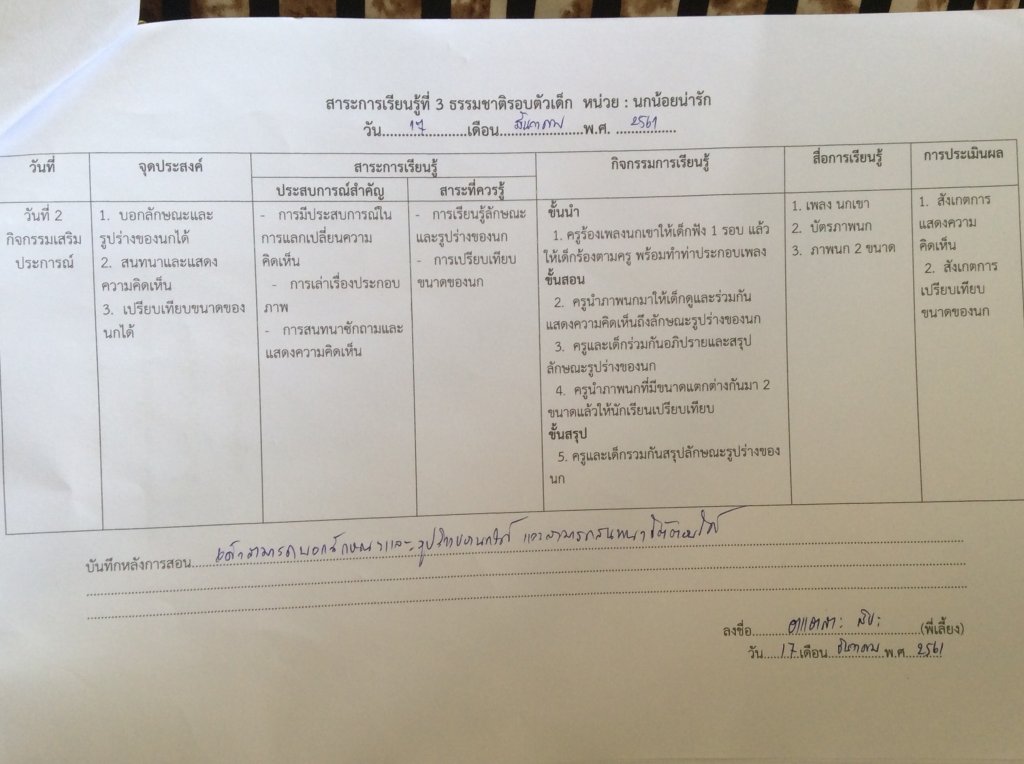 สาระการเรียนรู้ที่ 3 ธรรมชาติรอบตัวเด็ก หน่วย : นกน้อยน่ารัก
วัน......17......เดือน...ธันวาคม...พ.ศ. ...2561...
วันที่
จุดประสงค์
สาระการเรียนรู้
ประสบการณ์สำคัญ
สาระที่ควรรู้
กิจกรรมการเรียนรู้
สื่อการเรียนรู้
การประเมินผล
วันที่ 2
กิจกรรมเสริม
ประการณ์
1. บอกลักษณะและ
รูปร่างของนกได้
2. สนทนาและแสดง
ความคิดเห็น
3. เปรียบเทียบขนาดของ
นกได้
- การมีประสบการณ์ใน
การแลกเปลี่ยนความ
คิดเห็น
- การเล่าเรื่องประกอบ
ภาพ
- การสนทนาซักถามและ
แสดงความคิดเห็น
- การเรียนรู้ลักษณะ
และรูปร่างของนก
- การเปรียบเทียบ
ขนาดของนก
ขั้นนำ
1. ครูร้องเพลงนกเขาให้เด็กฟัง 1 รอบ แล้ว
ให้เด็กร้องตามครู พร้อมทำท่าประกอบเพลง
ขั้นสอน
2. ครูนำภาพนกมาให้เด็กดูและร่วมกัน
แสดงความคิดเห็นถึงลักษณะรูปร่างของนก
3. ครูและเด็กร่วมกันอภิปรายและสรุป
ลักษณะรูปร่างของนก
4. ครูนำภาพนกที่มีขนาดแตกต่างกันมา 2
ขนาดแล้วให้นักเรียนเปรียบเทียบ
ขั้นสรุป
5. ครูและเด็กรวมกันสรุปลักษณะรูปร่างของ
นก
1. เพลง นกเขา
2. บัตรภาพนก
3. ภาพนก 2 ขนาด
1. สังเกตการ
แสดงความ
คิดเห็น
2. สังเกตการ
เปรียบเทียบ
ขนาดของนก
บันทึกหลังการสอน...เด็กสามารถบอกลักษณะและรูปร่างของนกได้ และสามารถสนทนาโต้ตอบได้
ลงชื่อ......(พี่เลี้ยง)
วัน...17...เดือน...ธันวาคม...พ.ศ...2561